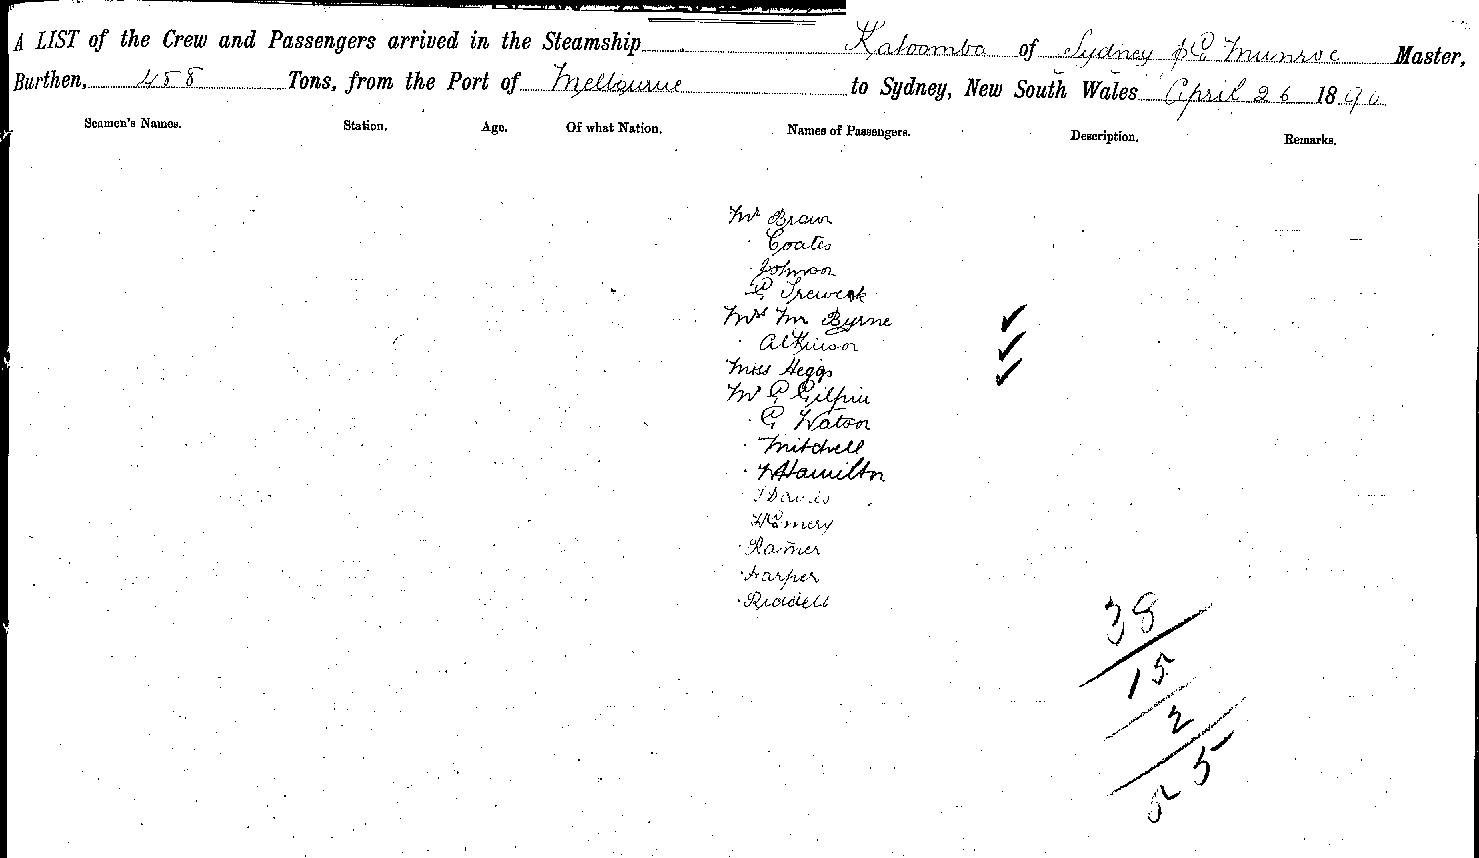 A LIST of the Crew and Passengers arrived in the Steamship Katoomba of Sydney Munroe Master,
Burthen, 458 Tons, from the Port of Melbourne to Sydney, New South Wales April 26 1890
Seamen's Names. Station. Age. Of what Nation. Names of Passengers. Description. Remarks.
Mr Brown
Coates
Johnson
Treweek
Mrs Byrne
Atkinson
Miss Heggs
Mr G Gilpin
G Watson
Mitchell
Hamilton
Davis
Ramer
Harper
Riddell
38
15
2
5